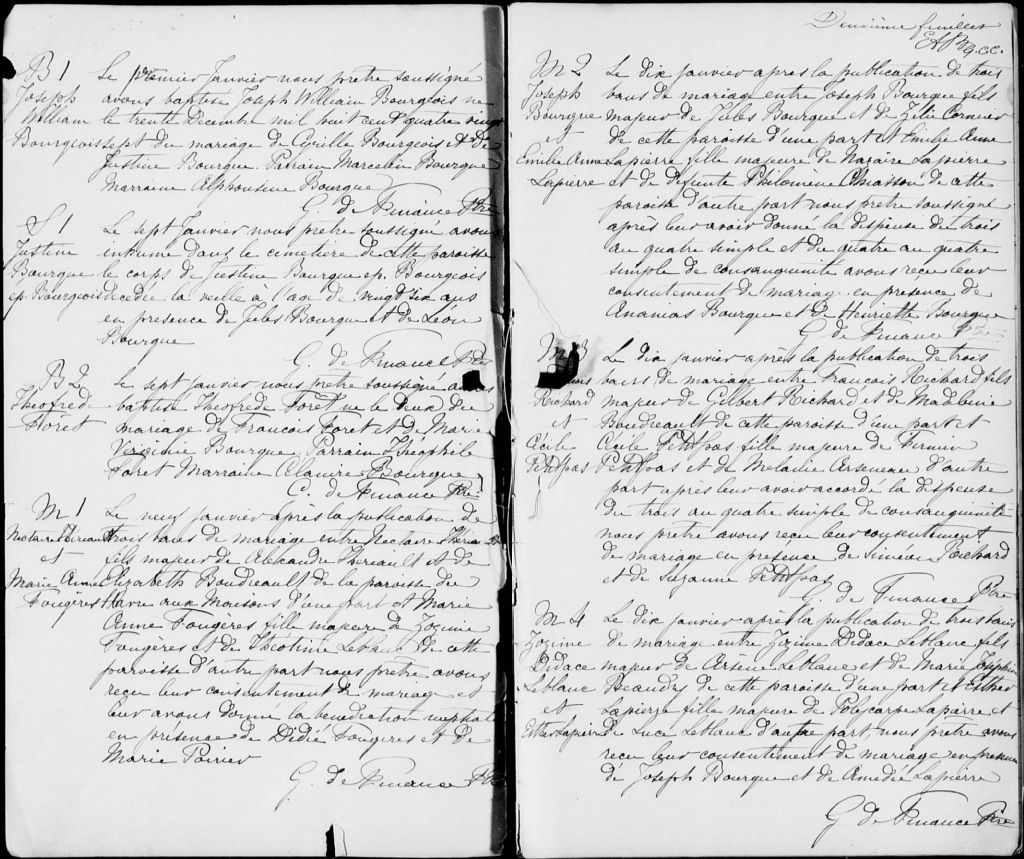 B 1
Joseph
William
Bourgeois
Le premier Janvier nous pretre soussigné
avons baptisé Joseph William Bourgeois ne
le trente Decembre mil huit cent quatre vingt
sept du mariage de Cyrille Bourgeois et de
Justine Bourque. Parrain Marcelin Bourque
Marraine Alphonsine Bourque
G. de Finance Ptre
S 1
Justine
Bourque
ep. Bourgeois
Le sept Janvier nous pretre soussigné avons
inhumé dans le cimetiere de cette paroisse
le corps de Justine Bourque ep. Bourgeois
decedée la veille à l'age de vingt six ans
en presence de Jules Bourque et de Leon
Bourque
G. de Finance Ptre
B 2
Théofrede
Foret
Le sept janvier nous pretre soussigné avons
baptisé Théofrede Foret ne le deux du
mariage de Francois Foret et de Marie
Virginie Bourque. Parrain Théophile
Foret Marraine Clanire Bourque
G. de Finance Ptre
M 1
Nectaire Theriault
et
Marie Anne
Fougères
Le neuf janvier après la publication de
trois bans de mariage entre Nectaire Theriault
fils majeur de Alexandre Theriault et de
Elizabeth Boudreault de la paroisse du
Havre aux Maisons d'une part et Marie
Anne Fougères fille majeure de Zozime
Fougères et de Théotine Leblanc de cette
paroisse d'autre part nous pretre avons
reçu leur consentement de mariage et
leur avons donné la benediction nuptiale
en presence de Didié Fougères et de
Marie Poirier
G. de Finance Ptre
Deuxième feuillet
M 2
Joseph
Bourque
et
Emilie Anne
Lapierre
Le dix janvier apres la publication de trois
bans de mariage entre Joseph Bourque fils
majeur de Jules Bourque et de Zilie Cormier
de cette paroisse d'une part et Emilie Anne
Lapierre fille majeure de Nazaire Lapierre
et de defunte Philomène Chiasson de cette
paroisse d'autre part nous pretre soussigné
après leur avoir donné la dispense du trois
au quatre simple et du quatre au quatre
simple de consanguinité avons recu leur
consentement de mariage en presence de
Ananias Bourque et de Henriette Bourque
G. de Finance Ptre
M 3
Richard
et
Cécile
Petitpas
Le dix janvier après la publication de trois
bans de mariage entre Francois Richard fils
majeur de Gilbert Richard et de Madeleine
Boudreault de cette paroisse d'une part et
Cecile Petitpas fille majeure de Firmin
Petitpas et de Melanie Arseneau d'autre
part après leur avoir accordé la dispense
du trois au quatre simple de consanguinité
nous pretre avons reçu leur consentement
de mariage en presence de Simeon Richard
et de Suzanne Petitpas
G. de Finance Ptre
M 4
Zozime
Didace
Leblanc
et
Esther Lapierre
Le dix janvier après la publication de trois bans
de mariage entre Zozime Didace Leblanc fils
majeur de Arsene Leblanc et de Marie Josephine
Beaudry de cette paroisse d'une part et Esther
Lapierre fille majeure de Polycarpe Lapierre et
de Luce Leblanc d'autre part, nous pretre avons
recu leur consentement de mariage en presence
de Joseph Bourque et de Amedée Lapierre
G de Finance Ptre